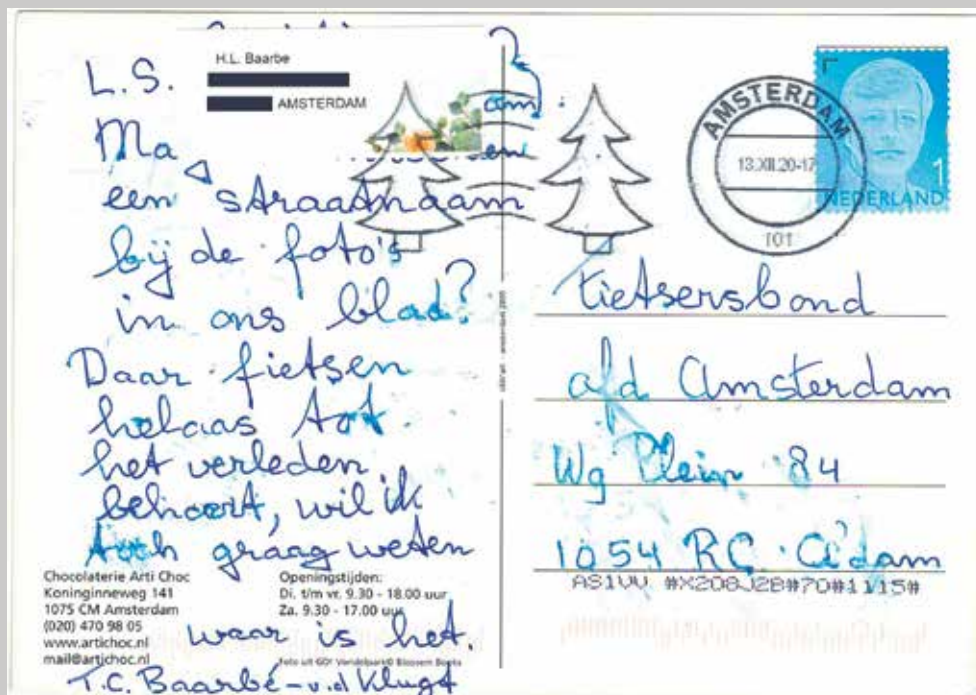 H.L. Baarbe
AMSTERDAM
L.S.
Ma
een straatnaam
bij de foto's
in ons blad?
Daar fietsen
helaas tot
het verleden
behoort, wil ik
toch graag weten
waar is het.
T.C. Baarbé-v.d Klugt
Chocolaterie Arti Choc
Koninginneweg 141
1075 CM Amsterdam
(020) 470 98 05
www.artichoc.nl
mail@artichoc.nl
Openingstijden:
Di. t/m vr. 9.30 - 18.00 uur
Za. 9.30 - 17.00 uur
Foto uit GO! Vondelpark© Blossom Books
AMSTERDAM
13.XII.20-17
101
1
NEDERLAND
Fietsersbond
afd Amsterdam
Wg Plein 84
1054 RC A'dam
AS1VV #X208J2B#70#1115#